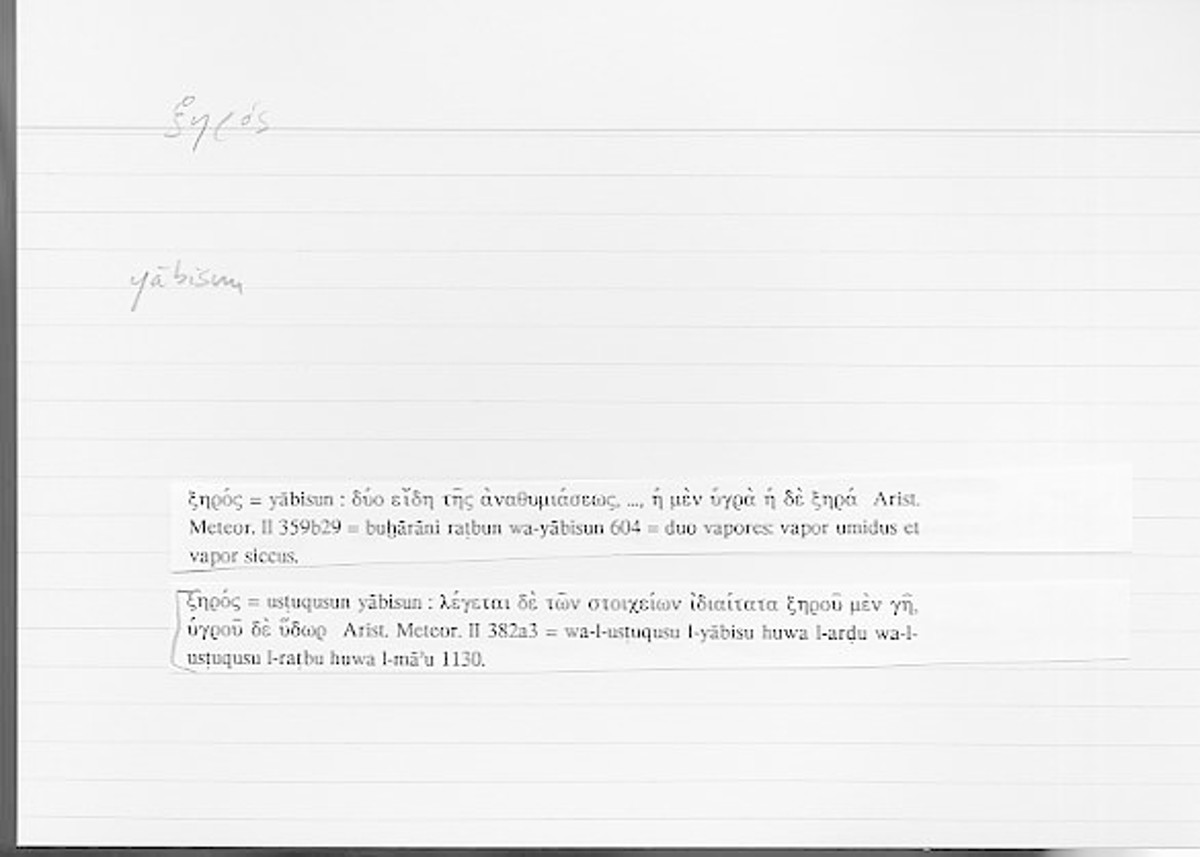 ξηρός
yābisun
ξηρός = yābisun : δύο εἴδη τῆς ἀναθυμιάσεως, ..., ἡ μὲν ὑγρὰ ἡ δὲ ξηρά Arist.
Meteor. II 359b29 = buḫārāni raṭbun wa-yābisun 604 = duo vapores: vapor umidus et
vapor siccus.
ξηρός = usṭuqusun yābisun : λέγεται δὲ τῶν στοιχείων ἰδιαίτατα ξηροῦ μὲν γῆ,
ὑγροῦ δὲ ὕδωρ Arist. Meteor. II 382a3 = wa-l-usṭuqusu l-yābisu huwa l-arḍu wa-l-
usṭuqusu l-raṭbu huwa l-māʾu 1130.